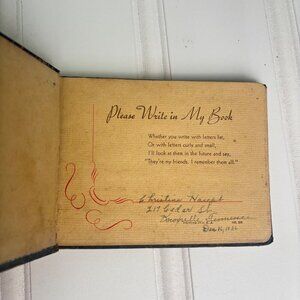 Please Write in My Book
Whether you write with letters fat,
Or with letters curly and small,
I'll look at them in the future and say,
"They're my friends. I remember them all."
Christine
217 Cedar St.
Tennessee
Dec